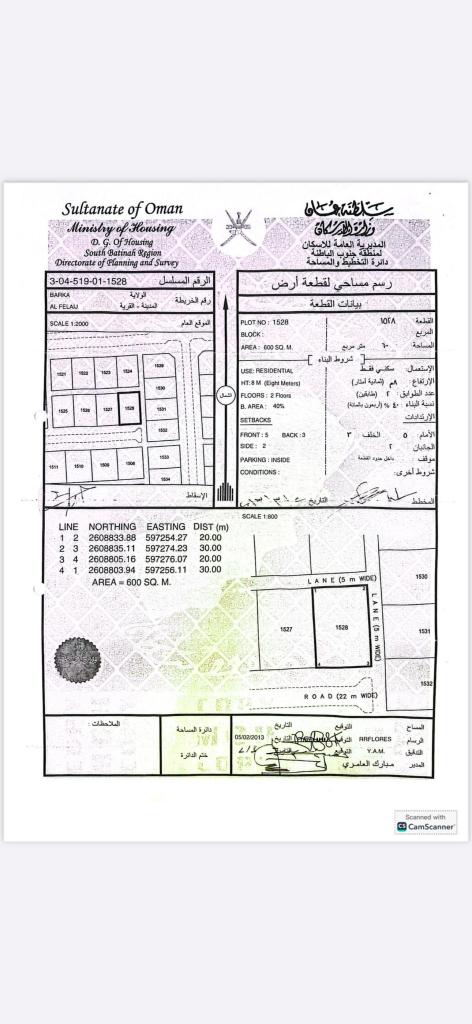 Sultanate of Oman
Ministry of Housing
D. G. Of Housing
South Batinah Region
Directorate of Planning and Survey
سلطنة عمان
وزارة الإسكان
المديرية العامة للاسكان
لمنطقة جنوب الباطنة
دائرة التخطيط والمساحة
3-04-519-01-1528 الرقم المسلسل
BARKA الولاية
AL FELAIJ المدينة - القرية
رقم الخريطة
SCALE 1:2000 الموقع العام
1521 1522 1523 1524 1529
1530
1525 1526 1527 1528 1531
1532
1511 1510 1509 1508 1533
1534
الإسقاط
الشمال
رسم مساحي لقطعة أرض
بيانات القطعة
PLOT NO : 1528 القطعة ١٥٢٨
BLOCK : المربع
AREA : 600 SQ. M. المساحة ٦٠٠ متر مربع
شروط البناء
USE: RESIDENTIAL الإستعمال: سكني فقط
HT: 8 M (Eight Meters) الإرتفاع: ٨م (ثمانية أمتار)
FLOORS : 2 Floors عدد الطوابق: ٢ (طابقين)
B. AREA : 40% نسبة البناء: ٤٠ % (أربعون بالمائة)
SETBACKS الإرتدادات
FRONT : 5 BACK : 3 الأمام: ٥ الخلف ٣
SIDE : 2 الجانبان ٢
PARKING : INSIDE موقف داخل حدود القطعة
CONDITIONS : شروط اخرى:
المخطط التاريخ
SCALE 1:800
LINE NORTHING EASTING DIST (m)
1 2 2608833.88 597254.27 20.00
2 3 2608835.11 597274.23 30.00
3 4 2608805.16 597276.07 20.00
4 1 2608803.94 597256.11 30.00
AREA = 600 SQ. M.
LANE (5 m WIDE)
LANE (5 m WIDE)
1527 1528 1530
1531
1532
ROAD (22 m WIDE)
الملاحظات :
دائرة المساحة
ختم الدائرة
المساح التوقيع التاريخ
الرسام RRFLORES التوقيع التاريخ 05/02/2013
التدقيق Y.A.M. التوقيع التاريخ
المدير مبارك العامري
Scanned with
CS CamScanner